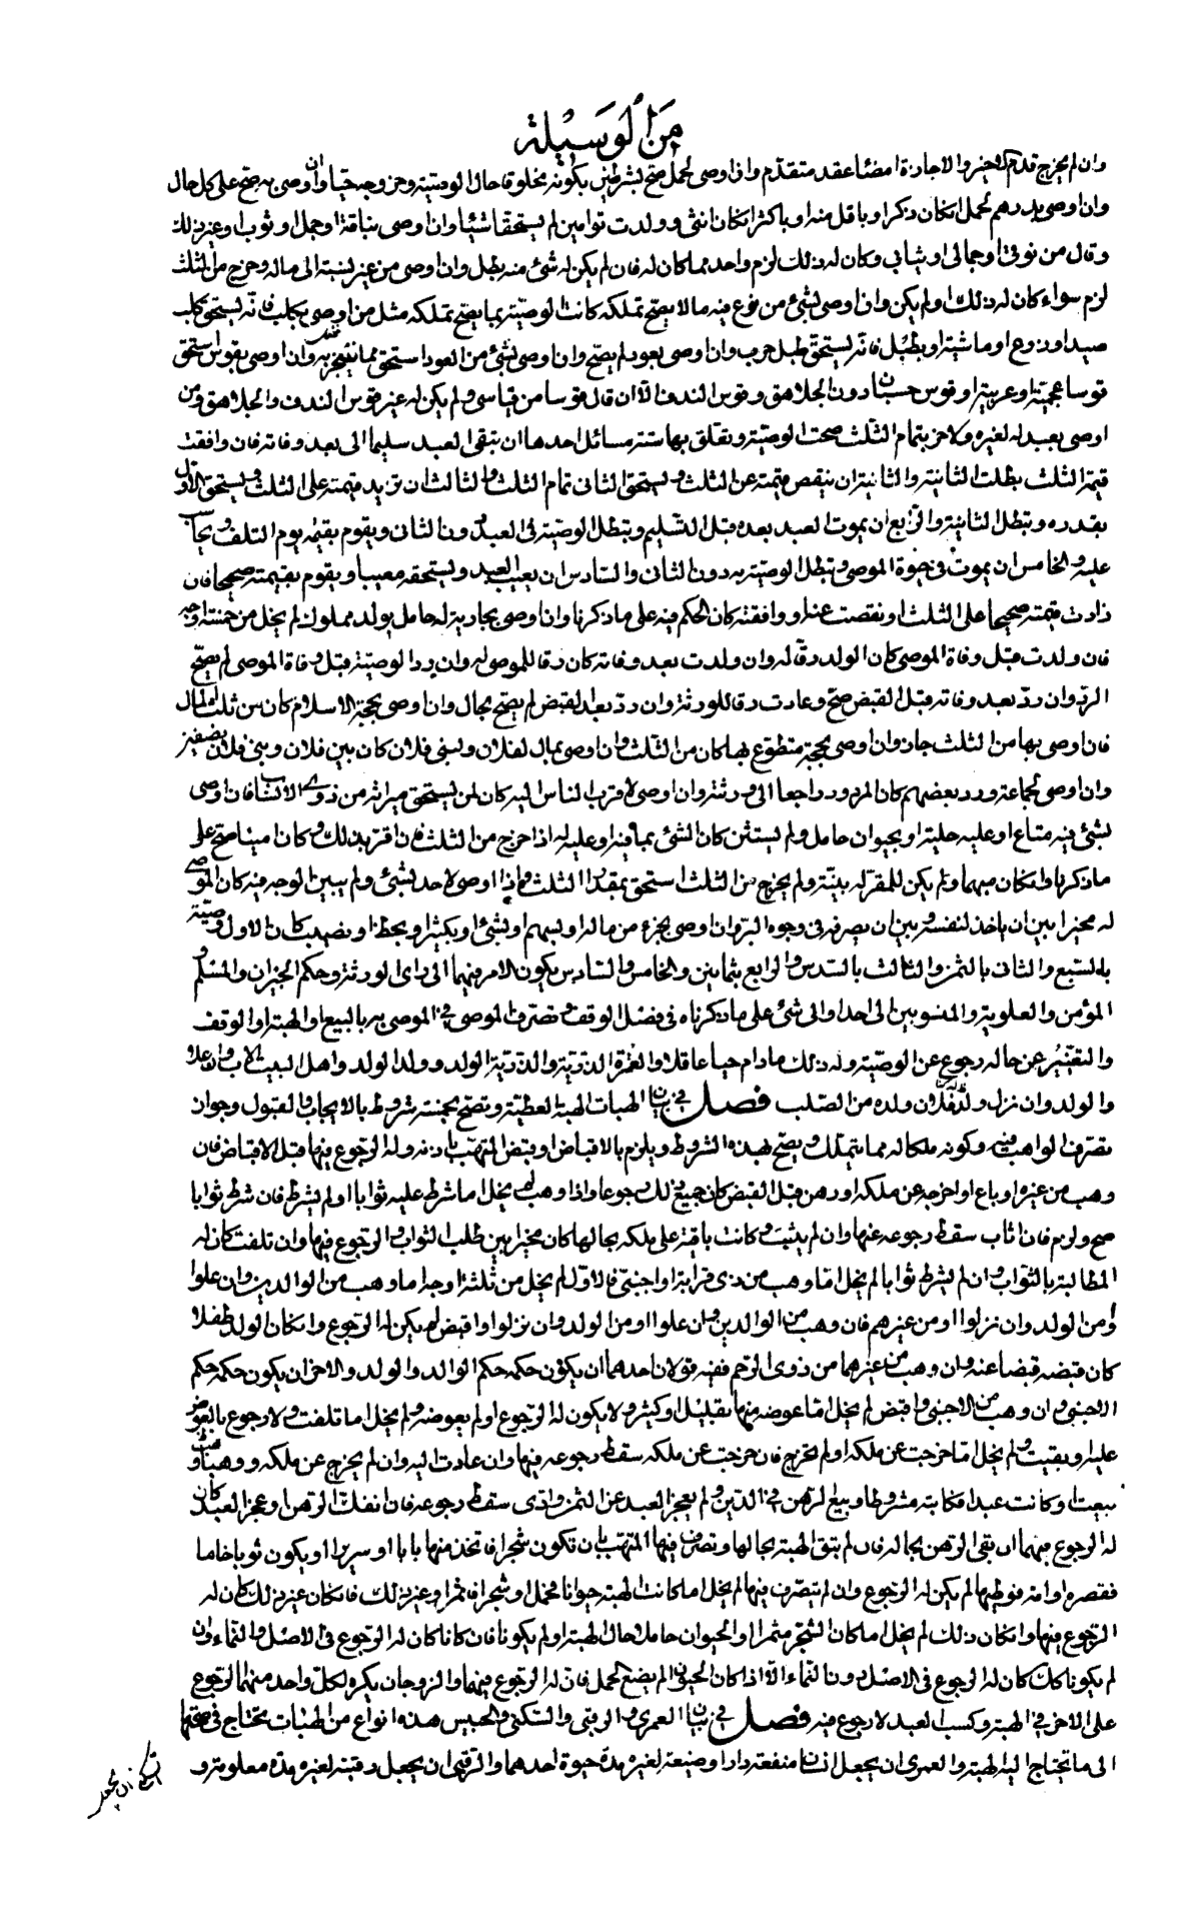 من الوسيلة
وان لم يخرج قدم الاخير والاجازة امضاء عقد متقدم واذا اوصى لحمل صح بشرطين بكونه مخلوقا حال الوصية وخروجه حيا وان اوصى به صح على كل حال
وان اوصى بدرهم لحمل ان كان ذكرا وباقل منه او باكثر ان كان انثى وولدت توامين لم يستحقا شيئا وان اوصى بناقة او جمل او ثوب او غير ذلك
وقال من نوقى او جمالى او ثيابى وكان له ذلك لزم واحد مما كان له فان لم يكن له شئ منه بطل وان اوصى من غير نسبة الى ماله وخرج من الثلث
لزم سواء كان له ذلك او لم يكن وان اوصى بشئ من نوع فيه ما لا يصح تملكه كانت الوصية بما يصح تملكه مثل من اوصى بكلب فانه يستحق كلب
صيد او زرع او ماشية او بطبل فانه يستحق طبل حرب وان اوصى بعود لم يصح وان اوصى بشئ من العود استحق مما يتبخر به وان اوصى بقوس استحق
قوسا عجمية او عربية او قوس حسبان دون الجلاهق وقوس الندف الا ان قال قوسا من قياسى ولم يكن له غير قوس الندف والجلاهق ومن
اوصى بعبد له لغيره ولاخر بتمام الثلث صحت الوصية وتعلق بها ستة مسائل احدها ان تبقى العبد سليما الى بعد وفاته فان وافقت
قيمة الثلث بطلت الثانية والثانية ان ينقص قيمته عن الثلث ويستحق الثانى تمام الثلث والثالث ان تزيد قيمته على الثلث ويستحق الاول
بقدره وتبطل الثانية والرابع ان يموت العبد بعده قبل التسليم وتبطل الوصية فى العبد دون الثانى ويقوم بقيمة يوم التلف
عليه والخامس ان يموت فى حيوة الموصى وتبطل الوصية به دون الثانى والسادس ان يعيب العبد ويستحقه معيبا ويقوم بقيمته صحيحا فان
زادت قيمته صحيحا على الثلث او نقصت عنه او وافقته كان الحكم فيه على ما ذكرنا وان اوصى بجارية له حامل بولد مملوك لم يخل من خمسة اوجه
فان ولدت قبل وفاة الموصى كان الولد رقا له وان ولدت بعد وفاته كان رقا للموصى له وان رد الوصية قبل وفاة الموصى لم يصح
الرد وان رد بعد وفاته قبل القبض صح وعادت رقا للورثة وان رد بعد القبض لم يصح بحال وان اوصى بحجة الاسلام كان من ثلث المال
فان اوصى بها من الثلث جاز وان اوصى بحجة متطوع بها كان من الثلث وان اوصى بمال لفلان ولبنى فلان كان بين فلان وبنى فلان نصفين
وان اوصى لجماعة ورد بعضهم كان المردود راجعا الى ورثته وان اوصى لاقرب الناس اليه كان لمن يستحق ميراثه من ذوى الانساب فان اوصى
بشئ فيه متاع او عليه حلية او بحيوان حامل ولم يستثن كان الشئ بما فيه او عليه له اذا خرج من الثلث فان اقر بذلك وكان امينا صح على
ما ذكرنا وان كان متهما ولم يكن للمقر له بينة ولم يخرج من الثلث استحق بمقدار الثلث واذا اوصى لاحد بشئ ولم يبين الوجه فيه كان الموصى
له مخيرا بين ان ياخذ لنفسه وبين ان يصرفه فى وجوه البر وان اوصى بجزء من ماله او بسهم او بشئ او بكثير او بحظ او نصيب كان الاول وصية
بالسبع والثانى بالثمن والثالث بالسدس والرابع بثمانين والخامس والسادس يكون الامر فيهما الى راى الورثة وحكم الجيران والمسلم و
المؤمن والعلوية والمنسوبين الى احد او الى شئ على ما ذكرناه فى فصل الوقف وتصرف الموصى فى الموصى به بالبيع او الهبة او الوقف
والتغيير عن حاله رجوع عن الوصية وله ذلك ما دام حيا عاقلا والعترة الذرية والذرية الولد وولد الولد واهل البيت الاب وان علا
والولد وان نزل وولد فلان ولده من الصلب فصل فى بيان الهبات الهبة العطية وتصح بخمسة شروط بالايجاب والقبول وجواز
تصرف الواهب فيه وكونه ملكا له مما يتملك ويصح بهذه الشروط ويلزم بالاقباض او قبض المتهب باذنه وله الرجوع فيها قبل الاقباض فان
وهب من غيره او باع او اخرجه عن ملكه او رهن قبل القبض كان جميع ذلك رجوعا واذا وهب لم يخل اما شرط عليه ثوابا او لم يشرط فان شرط ثوابا
صح ولزم فان اثاب سقط رجوعه عنها وان لم يثب وكانت باقية على ملكه بحالها كان مخيرا بين طلب الثواب والرجوع فيها وان تلفت كان له
المطالبة بالثواب وان لم يشرط ثوابا لم يخل اما وهب من ذى قرابة او اجنبى فالاول لم يخل من ثلثة اوجه اما وهب من الوالدين وان علوا
او من الولد وان نزلوا او من غيرهم فان وهب من الوالدين وان علوا او من الولد وان نزلوا واقبض لم يكن له الرجوع وان كان الولد طفلا
كان قبضه قبضا عنه وان وهب من غيرهما من ذوى الرحم ففيه قولان احدهما ان يكون حكمه حكم الوالد والولد والاخر ان يكون حكمه حكم
الاجنبى وان وهب من الاجنبى واقبض لم يخل اما عوضه منها بقليل او كثير ولا يكون له الرجوع او لم يعوضه ولم يخل اما تلفت ولا رجوع بالعوض
عليه او بقيت ولم يخل اما خرجت عن ملكه او لم تخرج فان خرجت عن ملكه سقط رجوعه فيها وان عادت اليه وان لم يخرج عن ملكه
بيعت او كانت عبدا فكاتبه مشروطا وبيع الرهن فى الدين ولم يعجز العبد عن الثمن وادى سقط رجوعه فان انفك الرهن او عجز العبد كان
له الرجوع فيهما ان بقى الرهن بحاله فان لم تبق الهبة بحالها وتصرف فيها المتهب بان تكون شجرا فاتخذ منها بابا او سريرا او يكون ثوبا خاما
فقصره او امة فوطيها لم يكن له الرجوع وان لم يتصرف فيها لم يخل اما كانت الهبة حيوانا فحمل او شجرا فاثمر او غير ذلك فان كان غير ذلك كان له
الرجوع فيها وان كان ذلك لم يخل اما كان الشجر مثمرا او الحيوان حاملا حال الهبة او لم يكونا فان كانا كان له الرجوع فى الاصل والنماء وان
لم يكونا كك كان له الرجوع فى الاصل دون النماء الا اذا كان الحيوان لم يضع الحمل فان له الرجوع فيهما والزوجان يكره لكل واحد منهما الرجوع
على الاخر فى الهبة وكسب العبد لا رجوع فيه فصل فى بيان العمرى والرقبى والسكنى والحبيس هذه انواع من الهبات يحتاج فى صحتها
الى ما تحتاج اليه الهبة والعمرى ان يجعل انسانا منفعة دار او ضيعة لغيره مدة حيوة احدهما والرقبى ان يجعل رقبته لغيره مدة معلومة و
السكنى ان يجعل